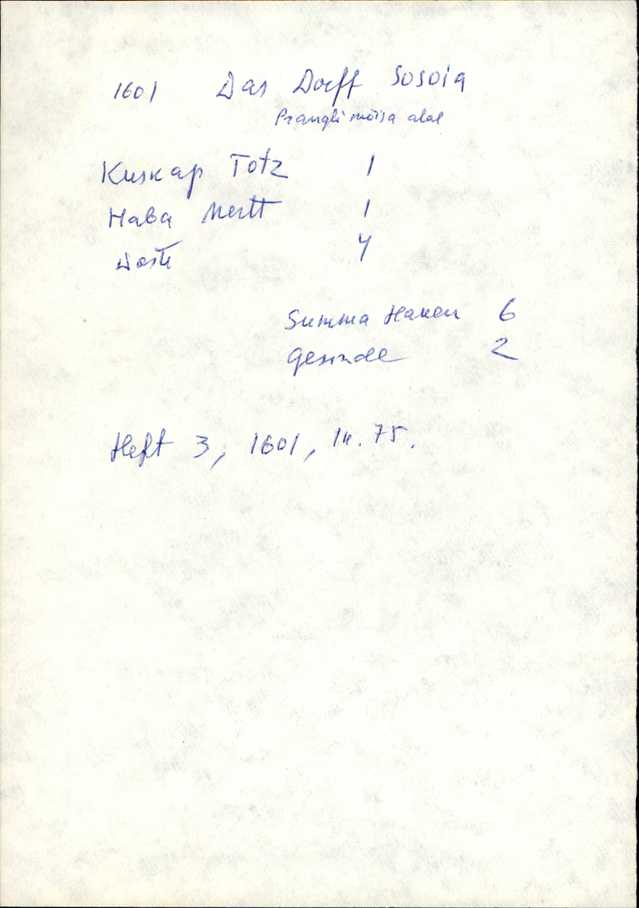 1601 Das Dorff Sosoia
Prangli mõisa alal
Kuskap Totz 1
Haba Mertt 1
4
Summa Haken 6
Gesinde 2
Heft 3, 1601, lk. 75.